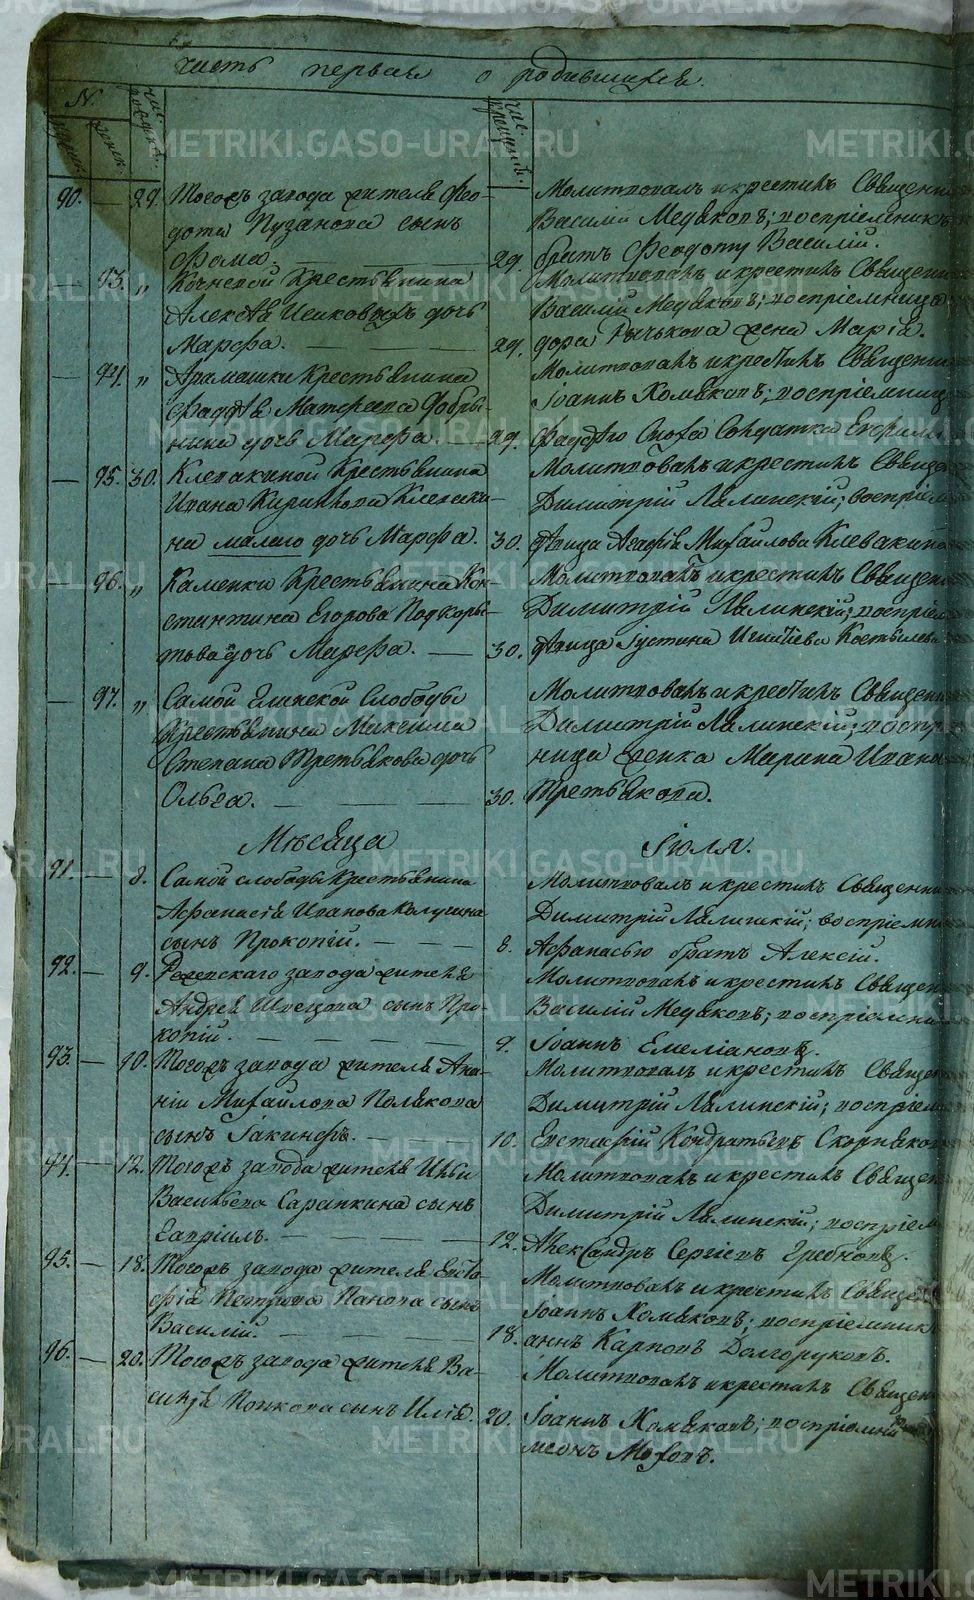 часть первая о родившихся.
N.
90. — 29. Тогожъ завода жителя Фео-
дота Пузанова сынъ
Фома. —
Молитвовалъ и крестилъ Священни
Василій Медяковъ; воспріемникъ
29. братъ Феодоту Василій.
— 93. „ Кочневой Крестьянина
Алексѣя Исакова дочь
Марфа. —
Молитвовалъ и крестилъ Священни
Василій Медяковъ; воспріемница
29. дора Рычькова жена Марія.
— 94. „ Арамашки Крестьянина
Фаддѣя Матвѣева Добры-
нина дочь Марфа. —
Молитвовалъ и крестилъ Священни
Іоаннъ Хомяковъ; воспріемниц
29. Фаддѣю Сноха Солдатка
— 95. 30. Клевакиной Крестьянина
Ивана Кирилова Клеваки-
на малаго дочь Марфа.
Молитвовалъ и крестилъ Священ
Димитрій Лялинскій; воспріем
30. дѣвица Агафія Михайлова Клевакина
— 96. „ Каменки Крестьянина Кон-
стантина Егорова Подкоры-
това дочь Марфа. —
Молитвовалъ и крестилъ Священ
Димитрій Лялинскій; воспріем
30. дѣвица Іустина Игнатіева Костылева
— 97. „ Самой Глинской Слободы
Крестьянина Максима
Степана Третьякова дочь
Ольга. —
Молитвовалъ и крестилъ Священни
Димитрій Лялинскій; воспріе
ница женка Марина Ивано
30. Третьякова.
Мѣсяца Іюля.
91. — 8. Самой слободы Крестьянина
Афанасія Иванова Калугина
сынъ Прокопій. —
Молитвовалъ и крестилъ Священни
Димитрій Лялинскій; воспріемни
8. Афанасью братъ Алексій.
92. — 9. Режевскаго завода жителя
Андрея Швецова сынъ Про-
копій. —
Молитвовалъ и крестилъ Священ
Василій Медяковъ; воспріемни
9. Іоаннъ Емеліановъ.
93. — 10. Тогожъ завода жителя Ана-
ніи Михайлова Полякова
сынъ Іакинфъ. —
Молитвовалъ и крестилъ Священ
Димитрій Лялинскій; воспріем
10. Евстафій Кондратьевъ Скорняков
94. — 12. Тогожъ завода жителя Ильи
Васильева Сарапкина сынъ
Гавріилъ. —
Молитвовалъ и крестилъ Священ
Димитрій Лялинскій; воспріем
12. Александръ Сергіевъ Гребновъ.
95. — 18. Тогожъ завода жителя Евста-
фія Петрова Панова сынъ
Василій. —
Молитвовалъ и крестилъ Священ
Іоаннъ Хомяковъ; воспріемник
18. аннъ Карповъ Долгоруковъ.
96. — 20. Тогожъ завода жителя Ва-
силія Попкова сынъ Илія.
Молитвовалъ и крестилъ Священ
20. Іоаннъ Хомяковъ; воспріемни
меонъ Моховъ.
METRIKI.GASO-URAL.RU